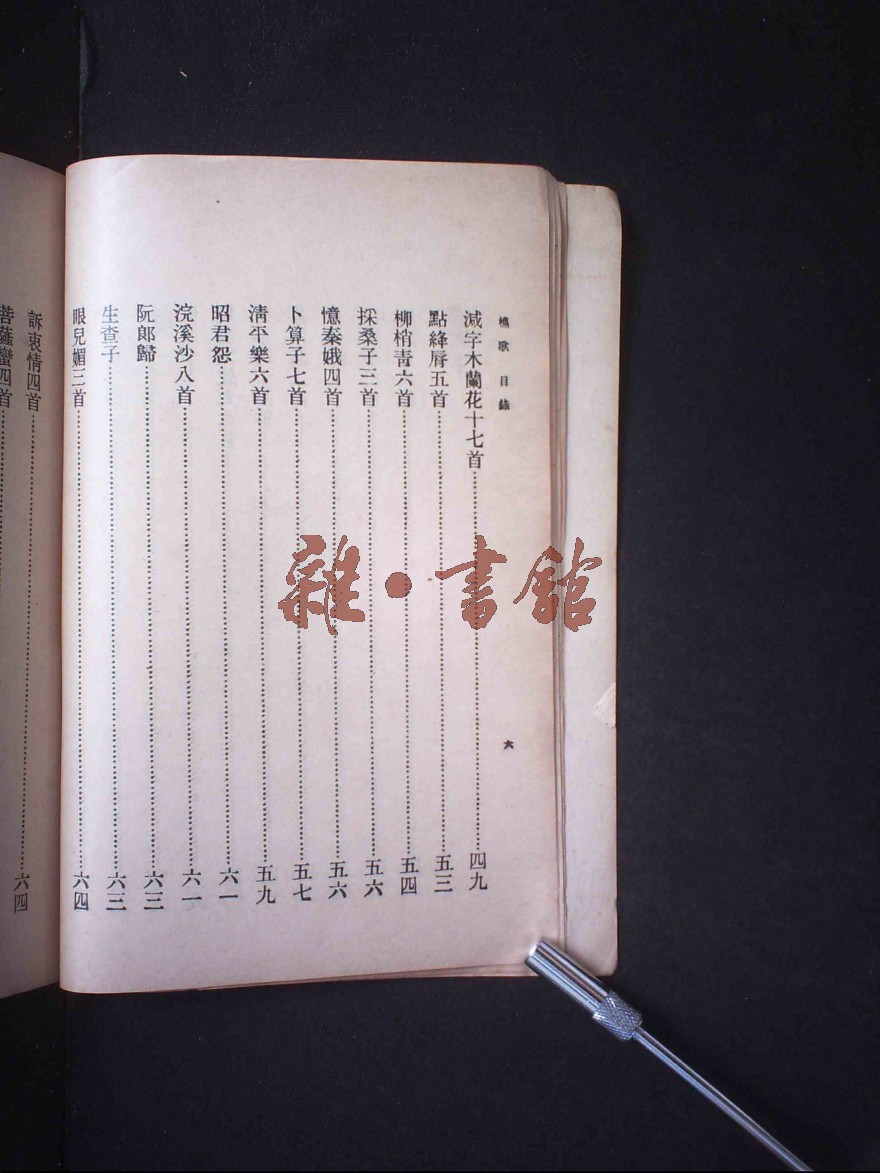 樵歌 目錄
六
減字木蘭花十七首……四九
點絳脣五首……五三
柳梢青六首……五四
採桑子三首……五六
憶秦娥四首……五六
卜算子七首……五七
清平樂六首……五九
昭君怨……六一
浣溪沙八首……六一
阮郎歸……六三
生查子……六三
眼兒媚三首……六四
訴衷情四首……六四
菩薩蠻四首
雜·書館